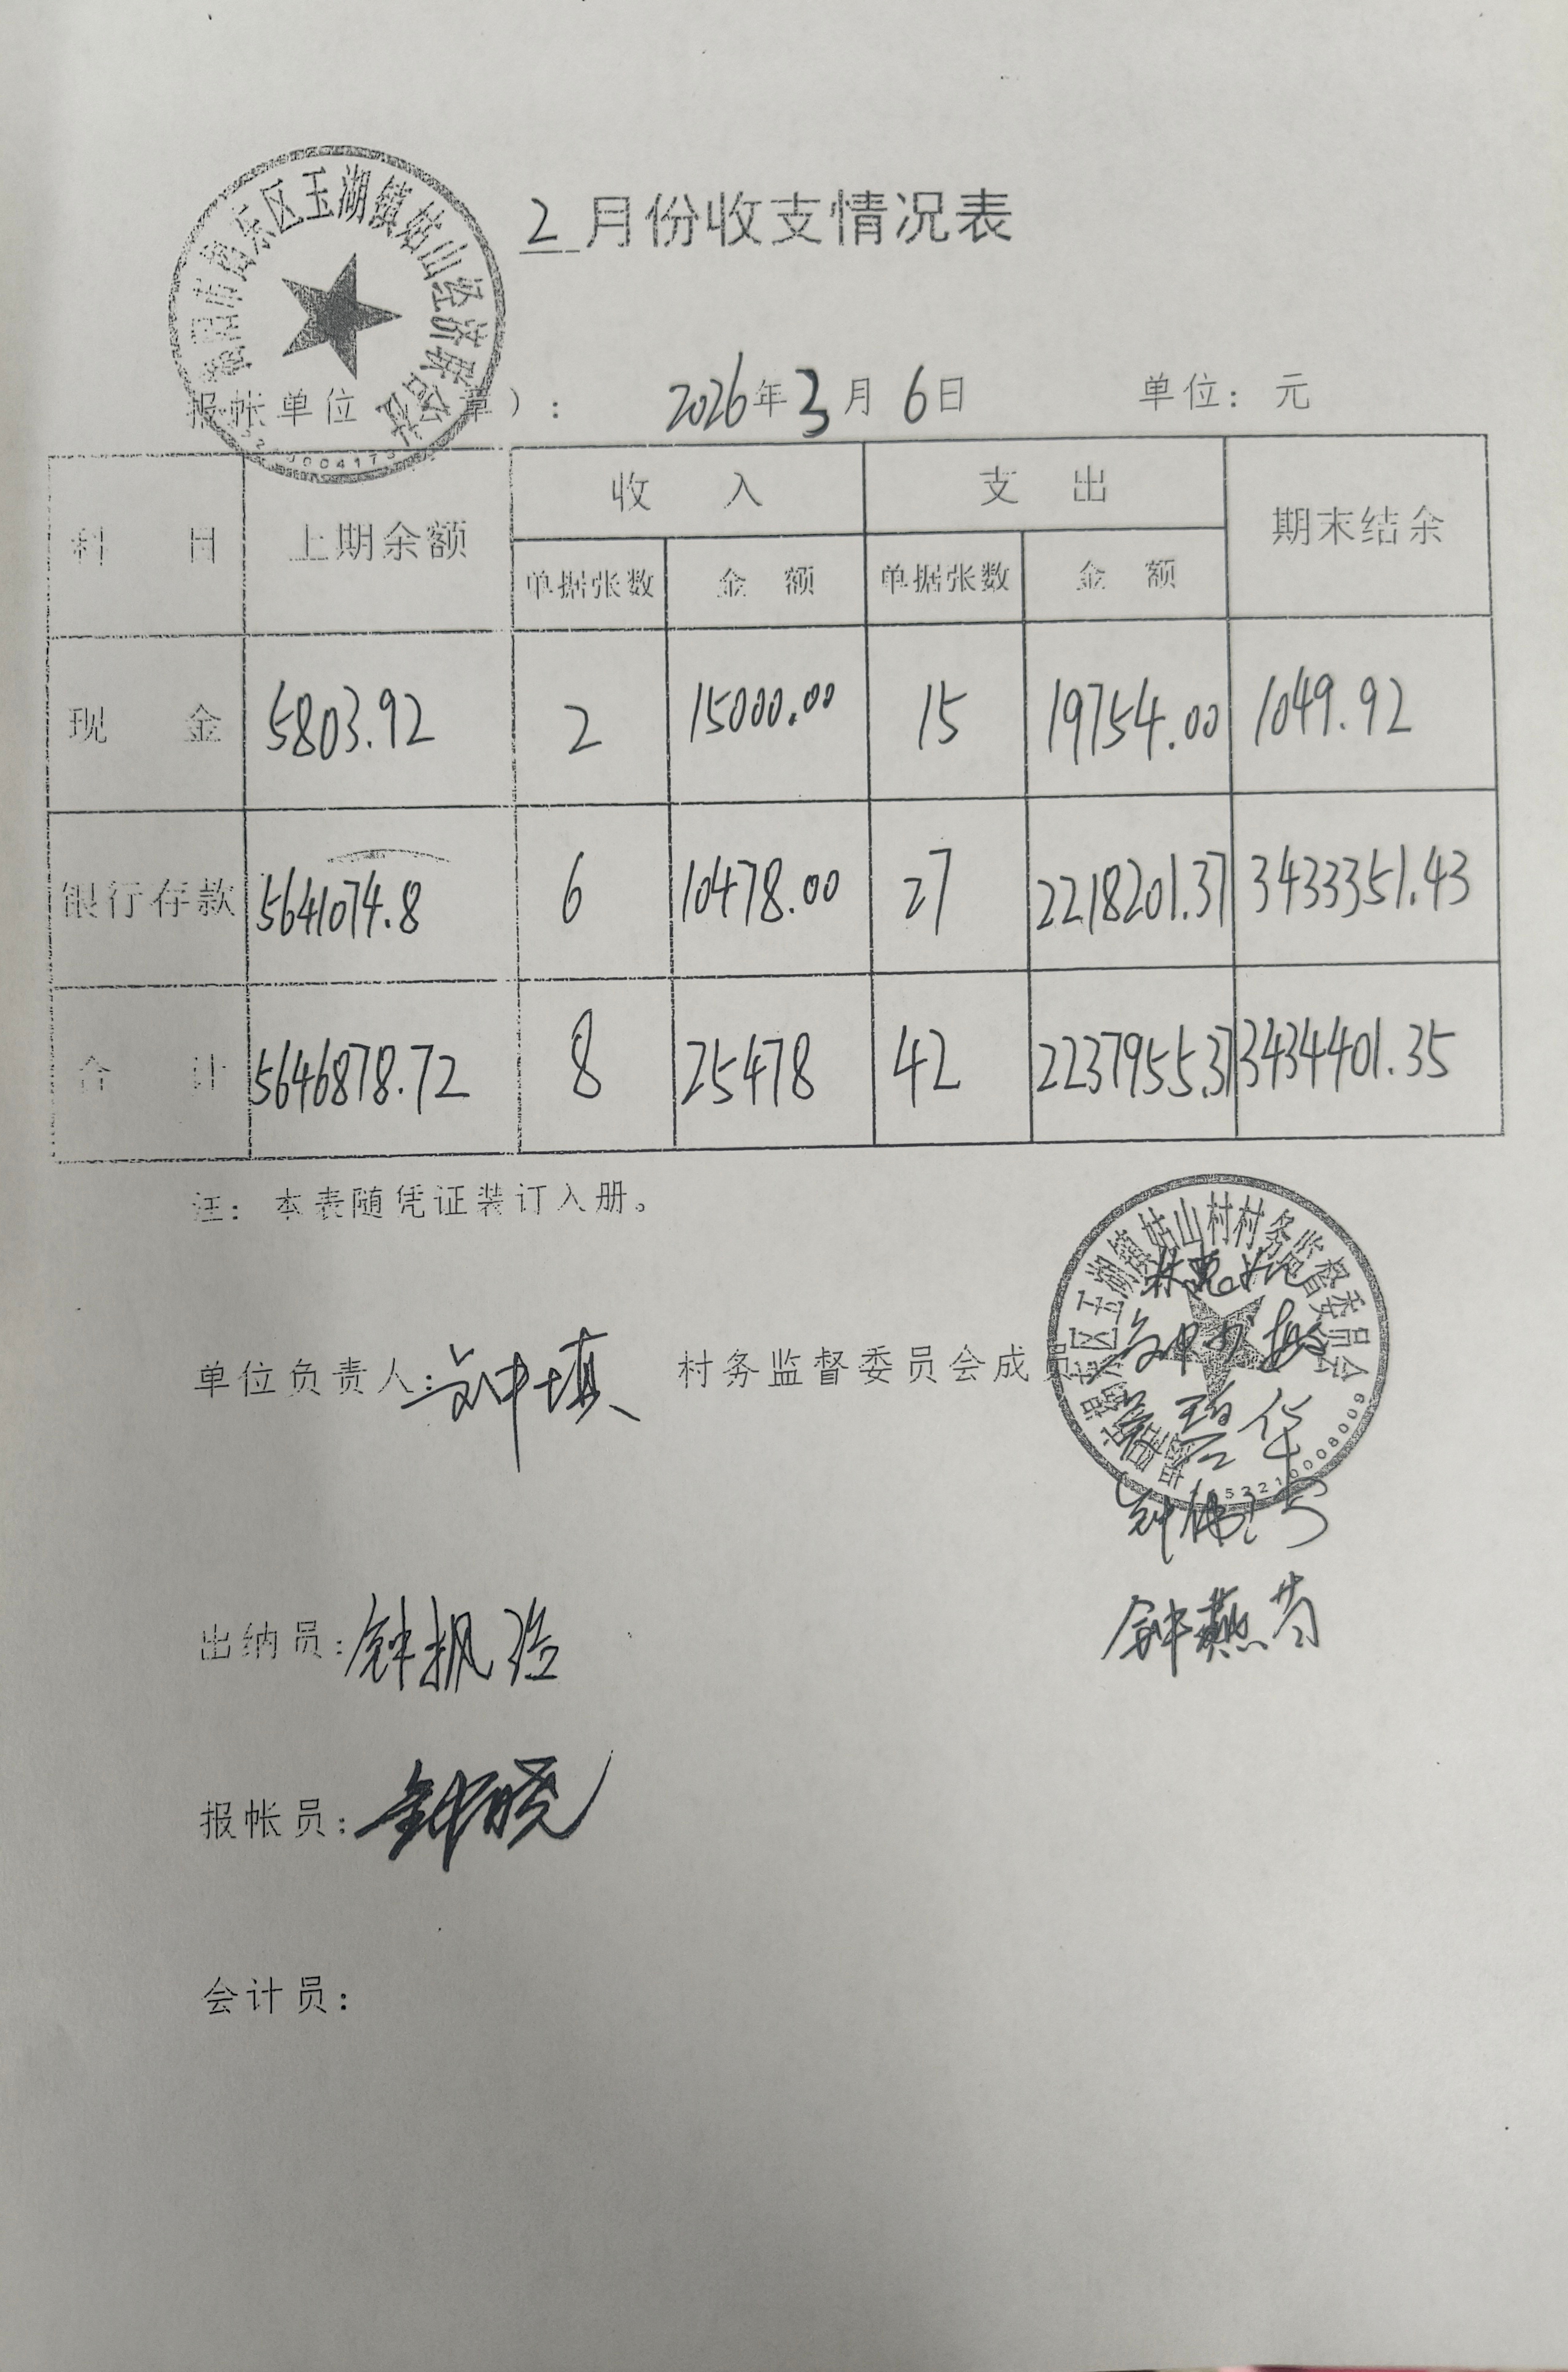 揭阳市揭东区玉湖镇姑山经济联合社
2月份收支情况表
报帐单位（公章）： 2026年3月6日 单位：元
科目 上期余额 收入 支出 期末结余
单据张数 金额 单据张数 金额
现金 5803.92 2 15000.00 15 19754.00 1049.92
银行存款 5641074.8 6 10478.00 27 2218201.37 3433351.43
合计 5646878.72 8 25478 42 2237955.37 3434401.35
注：本表随凭证装订入册。
玉湖镇姑山村村务监督委员会
单位负责人： 钟 村务监督委员会成员
出纳员：钟枫
钟燕芳
报帐员：钟晓
会计员：